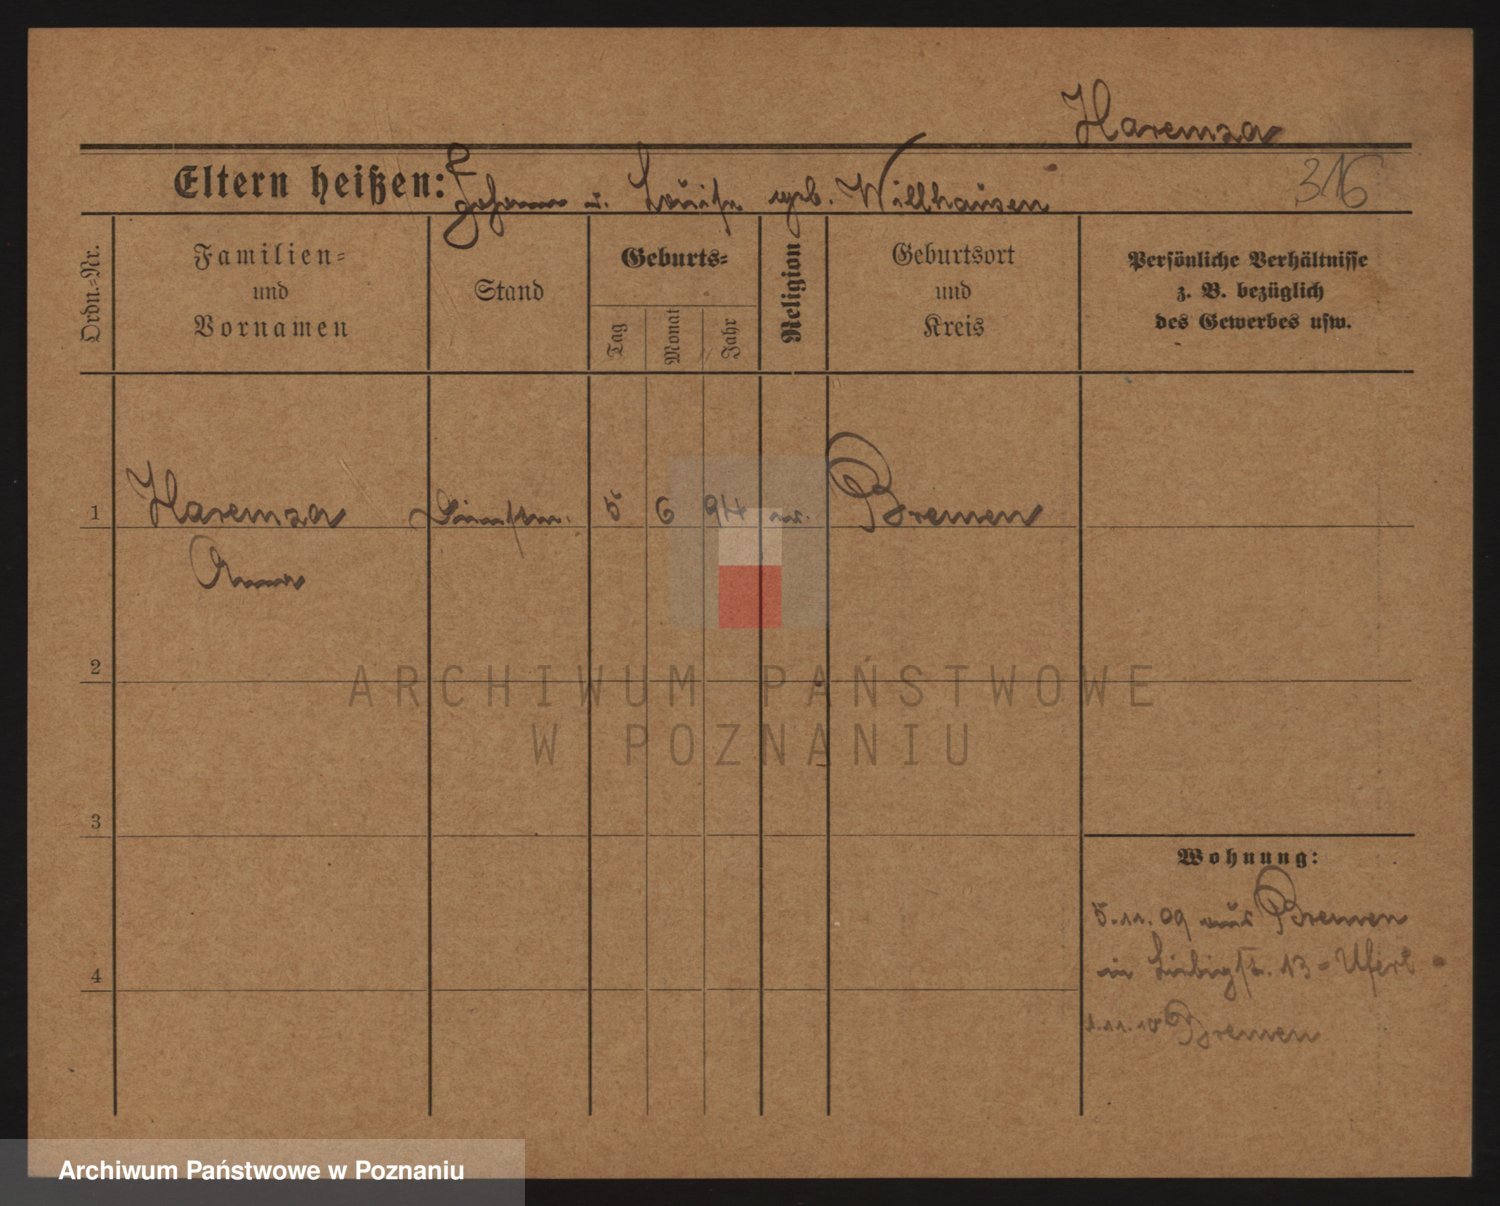 Haremza
316
Eltern heißen: Johann u. Louise geb. Willhausen
Ordn.=Nr.
Familien=
und
Vornamen
Stand
Geburts=
Tag
Monat
Jahr
Religion
Geburtsort
und
Kreis
Persönliche Verhältnisse
z. B. bezüglich
des Gewerbes usw.
1 Haremza 5 6 94 ev. Bremen
Anna
2
ARCHIWUM PAŃSTWOWE
W POZNANIU
3
Wohnung:
5.11.09 aus Bremen
4
in Liebigstr. 13
1.11.10 Bremen
Archiwum Państwowe w Poznaniu